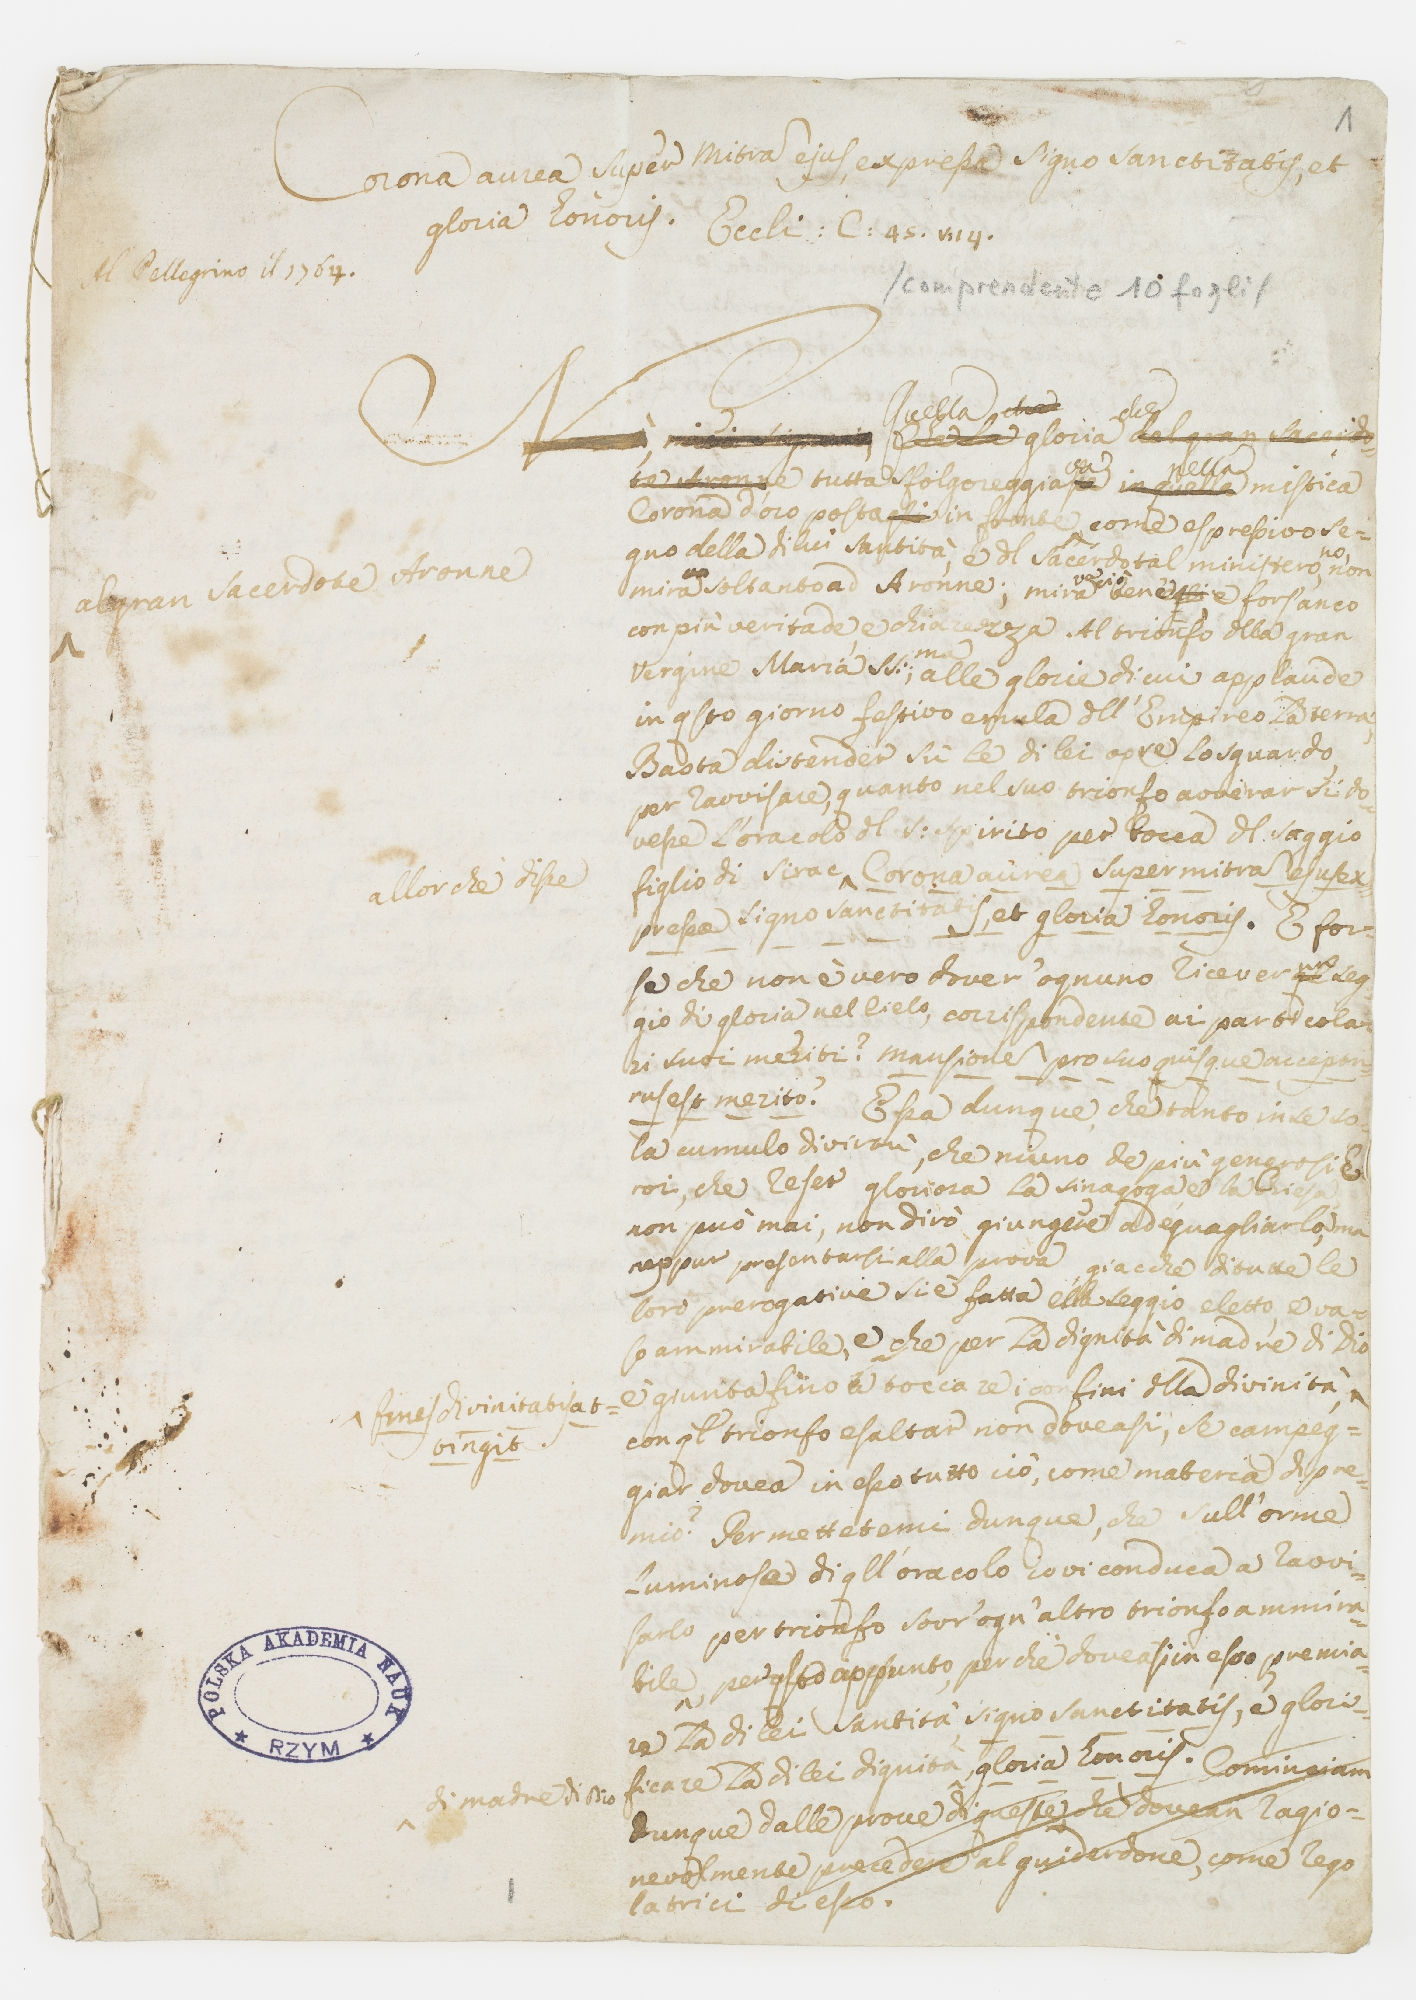 1
Corona aurea super mitra ejus, expressa signo sanctitatis, et
gloria honoris. Eccli: C: 45. v. 14.
Al Pellegrino il 1764.
/comprendente 10 fogli/
Quella che che
Nò, miei signori, gloria del gran Sacerdo-
te Aronne tutta sfolgoreggia in quella nella mistica
Corona d'oro postagli in fronte, come espressivo se-
gno della di lui santità, e dl sacerdotal ministero, no, non
al gran Sacerdote Aronne
mira soltanto ad Aronne; mira bene e fors'anco
con più veritade, e chiarezza Al trionfo dlla gran
Vergine Maria SS:ma; alle glorie di cui applaude
in qsto giorno festivo emula dll'Empireo la terra,
Basta distender sù le di lei opre lo sguardo,
per ravvisare, quanto nel suo trionfo avverar si do-
vesse l'oracolo dl S: Spirito per bocca dl saggio
allorchè disse
figlio di Sirac ^ Corona aurea super mitra ejus ex-
pressa signo sanctitatis, et gloria honoris. E for-
se che non è vero dover'ognuno ricever un seg-
gio di gloria nel Cielo, corrispondente ai particola-
ri suoi meriti? mansiones pro suo quisque acceptu-
rus est merito? Essa dunque, che tanto in se so-
la cumulo di virtù, che niuno de più generosi E-
roi, che reser gloriosa la sinagoga e la Chiesa
non può mai, non dirò giungere ad eguagliarlo, ma
neppur presentarsi alla prova, giacchè di tutte le
loro prerogative si è fatta ella seggio eletto, e va-
so ammirabile, e che per la dignità di madre di Dio
è giunta fino a toccare i confini dlla divinità, ^
^ fines divinitatis at-
tingit.
con ql trionfo esaltar non doveasi, se campeg-
giar dovea in esso tutto ciò, come materia di pre-
mio? Permettetemi dunque, che sull'orme
luminose di qll'oracolo io vi conduca a ravvi-
sarlo per trionfo sovr'ogn'altro trionfo ammira-
bile, per qsto appunto, perchè doveasi in esso premia-
re la di lei santità, signo sanctitatis, e glori-
ficare la di lei dignità, gloria honoris. Cominciam
^ di madre di Dio
dunque dalle prove di queste che dovean ragio-
nevolmente precedere al guiderdone, come rego
latrici di esso.
POLSKA AKADEMIA NAUK
RZYM